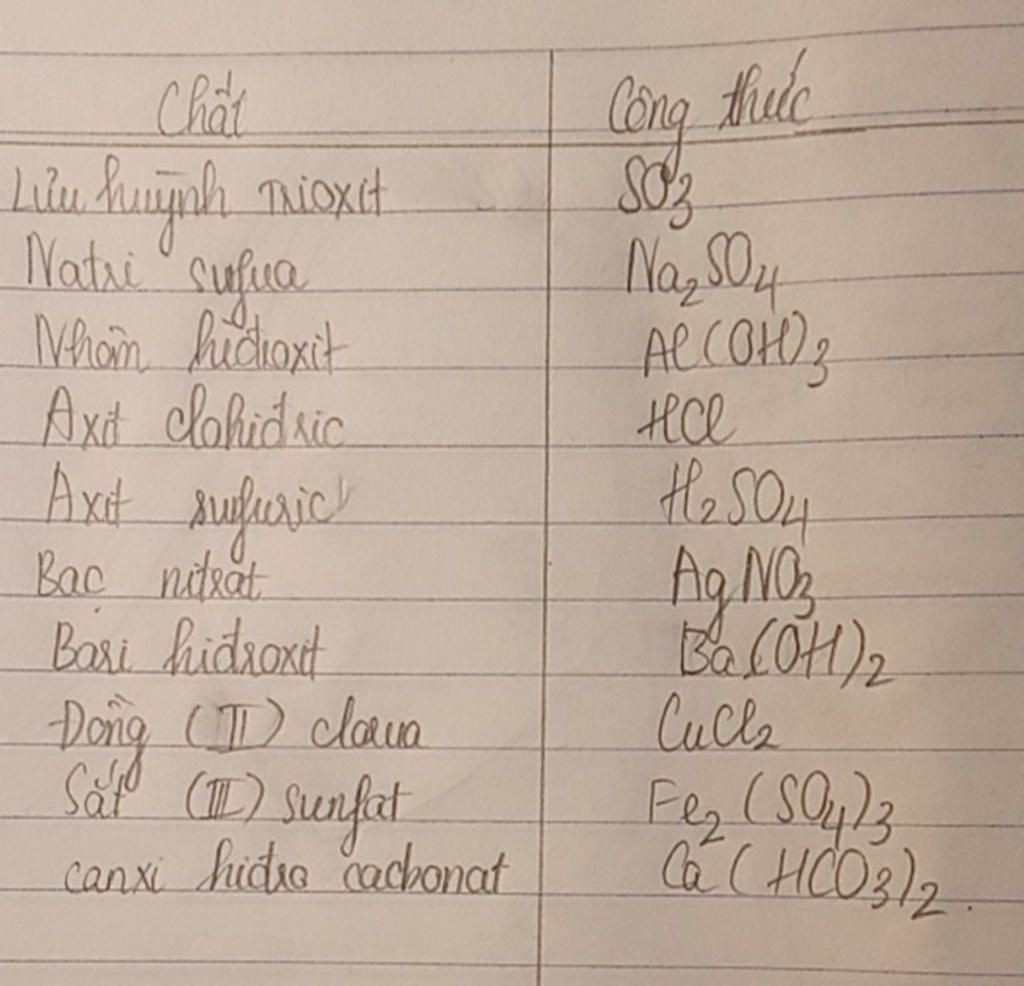 Chất Công thức
Lưu huỳnh trioxit SO3
Natri sufua Na2SO4
Nhôm hiđroxit Al(OH)3
Axit clohidric HCl
Axit sufuric H2SO4
Bạc nitrat AgNO3
Bari hiđroxit Ba(OH)2
Đồng (II) clorua CuCl2
Sắt (III) sunfat Fe2(SO4)3
canxi hiđro cacbonat Ca(HCO3)2.